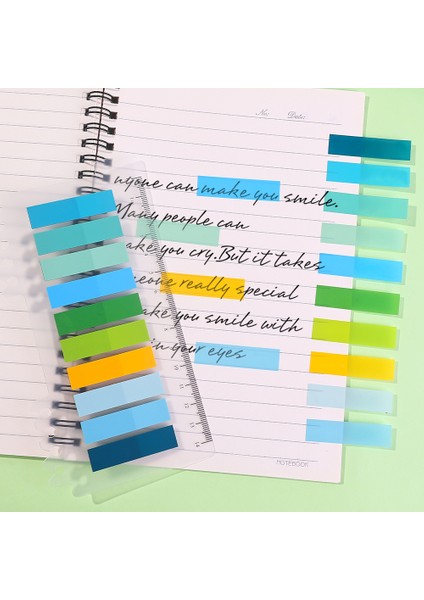 No: Date:
nyone can make you smile.
Many people can
ake you cry. But it takes
eone really special
ke you smile with
in your eyes
NOTEBOOK